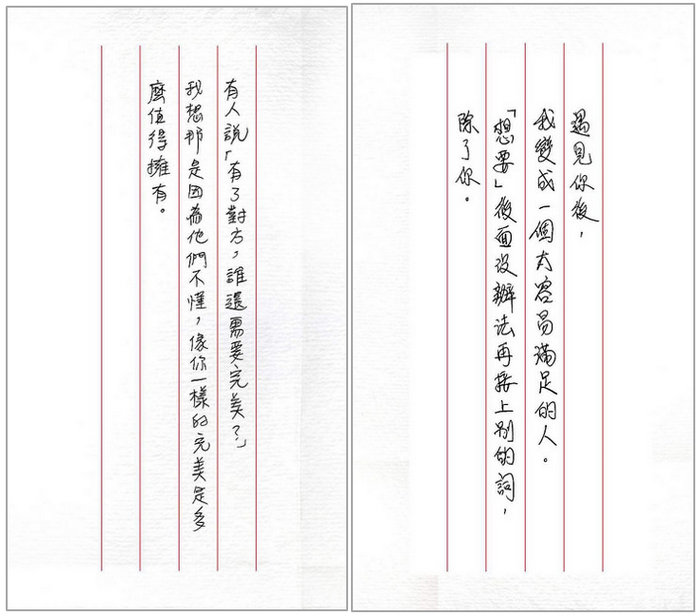 有人說「有了對方，誰還需要完美？」
我想那是因為他們不懂，像你一樣的完美是多
麼值得擁有。
遇見你後，
我變成一個太容易滿足的人。
「想要」後面沒辦法再接上別的詞，
除了你。